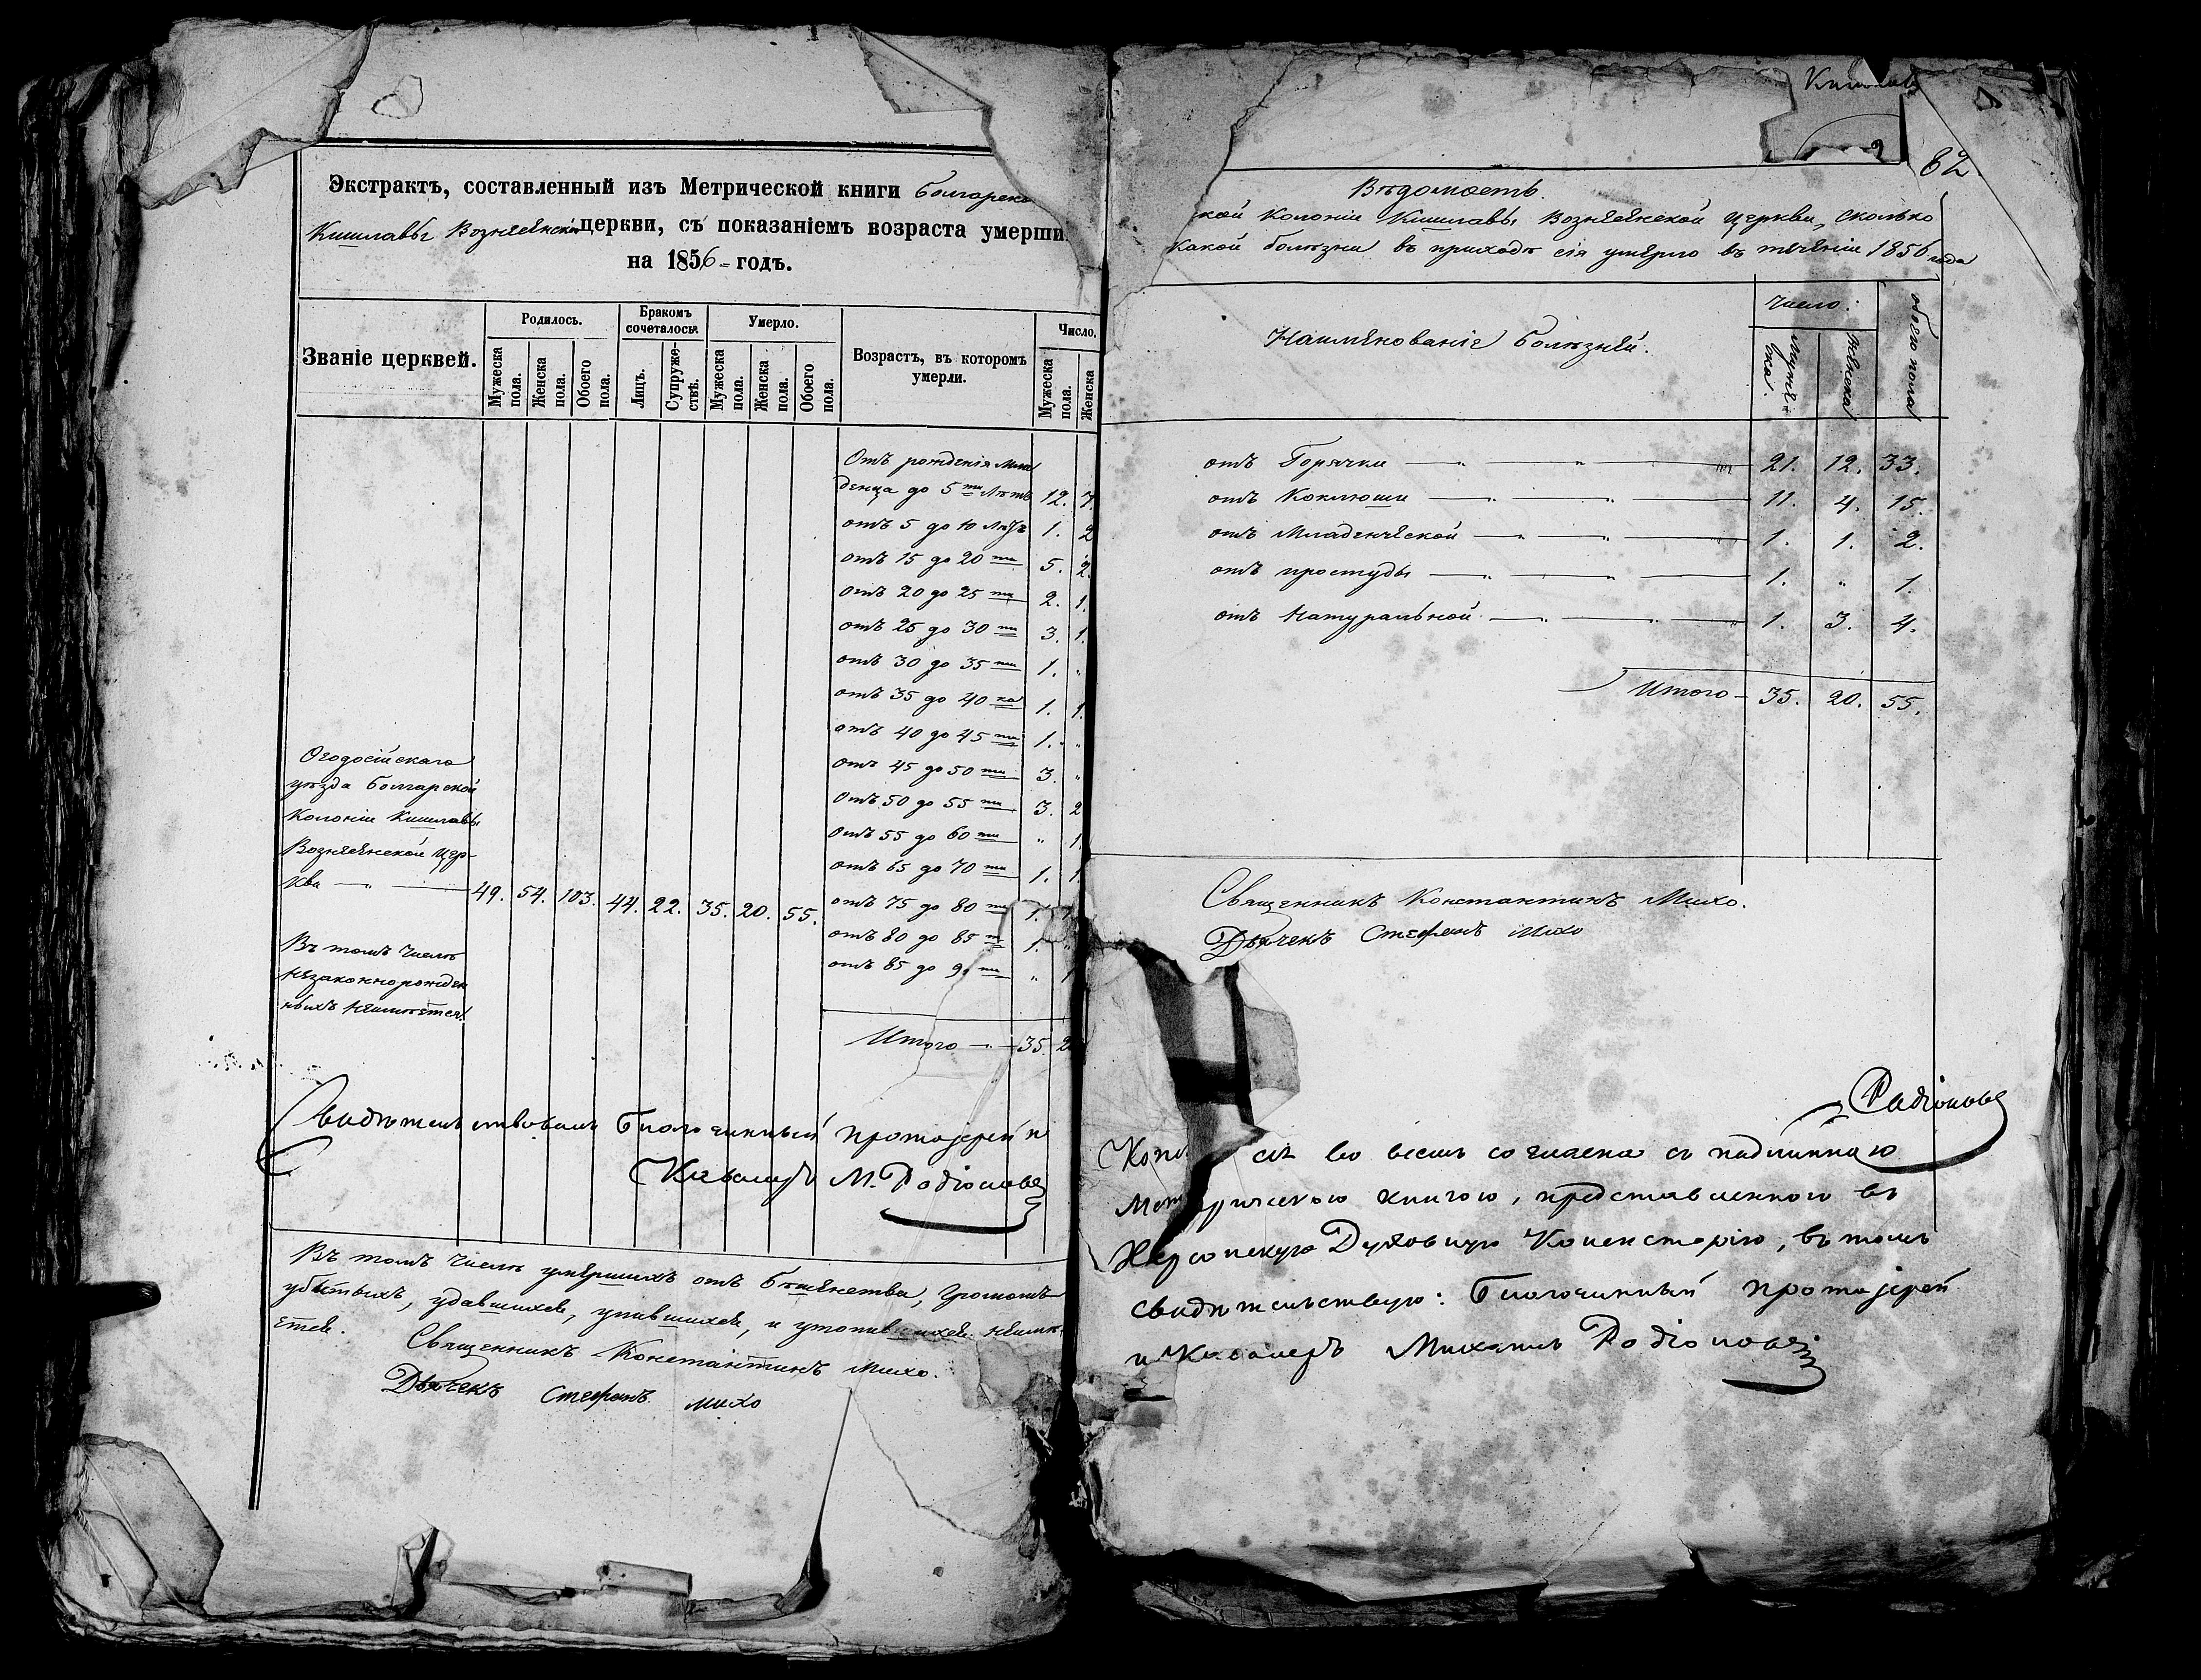 Экстрактъ, составленный изъ Метрической книги Болгарско
Кишлавы Вознесенской церкви, съ показаніемъ возраста умерши
на 1856 = годъ.
Званіе церквей.
Родилось.
Бракомъ сочеталось.
Умерло.
Возрастъ, въ которомъ умерли.
Число.
Мужеска пола.
Женска пола.
Обоего пола.
Лицъ.
Супруже-ствъ.
Мужеска пола.
Женска пола.
Обоего пола.
Мужеска пола.
Женска
Отъ рожденія мла
денца до 5ти Лѣтъ 12. 7.
отъ 5 до 10 Лѣтъ 1. 2
отъ 15 до 20 ти 5. 2.
отъ 20 до 25 ти 2. 1.
отъ 25 до 30 ти 3. 1.
отъ 30 до 35 ти 1. „
отъ 35 до 40 ка 1. 1.
отъ 40 до 45 ти 1. „
отъ 45 до 50 ти 3. „
Отъ 50 до 55 ти 3. 2
отъ 55 до 60 ти „ 1.
отъ 65 до 70 ти 1. 1.
отъ 75 до 80 1.
отъ 80 до 85 1.
отъ 85 до 90 ти „ 1
Итого 35. 2
Ѳеодосійскаго
уѣзда Болгарской
Колоніи Кишлавы
Вознесенской Цер-
ква 49. 54. 103. 44. 22. 35. 20. 55.
Въ томъ числѣ
незаконнорожден
ныхъ неимѣется.
Свидѣтельствовалъ Благочинный протоіерей и
Кавалеръ М. Родіоновъ
Въ томъ числѣ умершихъ отъ бѣшенства, громомъ
убитыхъ, удавшихся, упившихся, и утопившихся неимѣ-
ется.
Священникъ Константинъ Михо.
Дьячекъ Стефанъ Михо
Кишлав
62
Вѣдомость.
кой Колоніи Кишлавы Вознесенской Церкви, сколько
какой болѣзни въ приходѣ сія умерло въ теченіи 1856 года
Наименованіе болѣзней.
Число:
Мужеска.
Женска
обоего пола
отъ Горячки 21. 12. 33.
отъ Коклюши 11. 4. 15.
отъ Младенческой 1. 1. 2.
отъ простуды 1. „ 1.
отъ Натуральной 1. 3. 4.
Итого 35. 20. 55.
Священникъ Константинъ Михо.
Дьячекъ Стефанъ Михо
Родіоновъ
Копі сія во всемъ согласна съ подлинною
Метрическою книгою, представленною въ
Херсонскую Духовную Консисторію, въ томъ
свидѣтельствую: Благочинный протоіерей
и Кавалеръ Михаилъ Родіоновъ